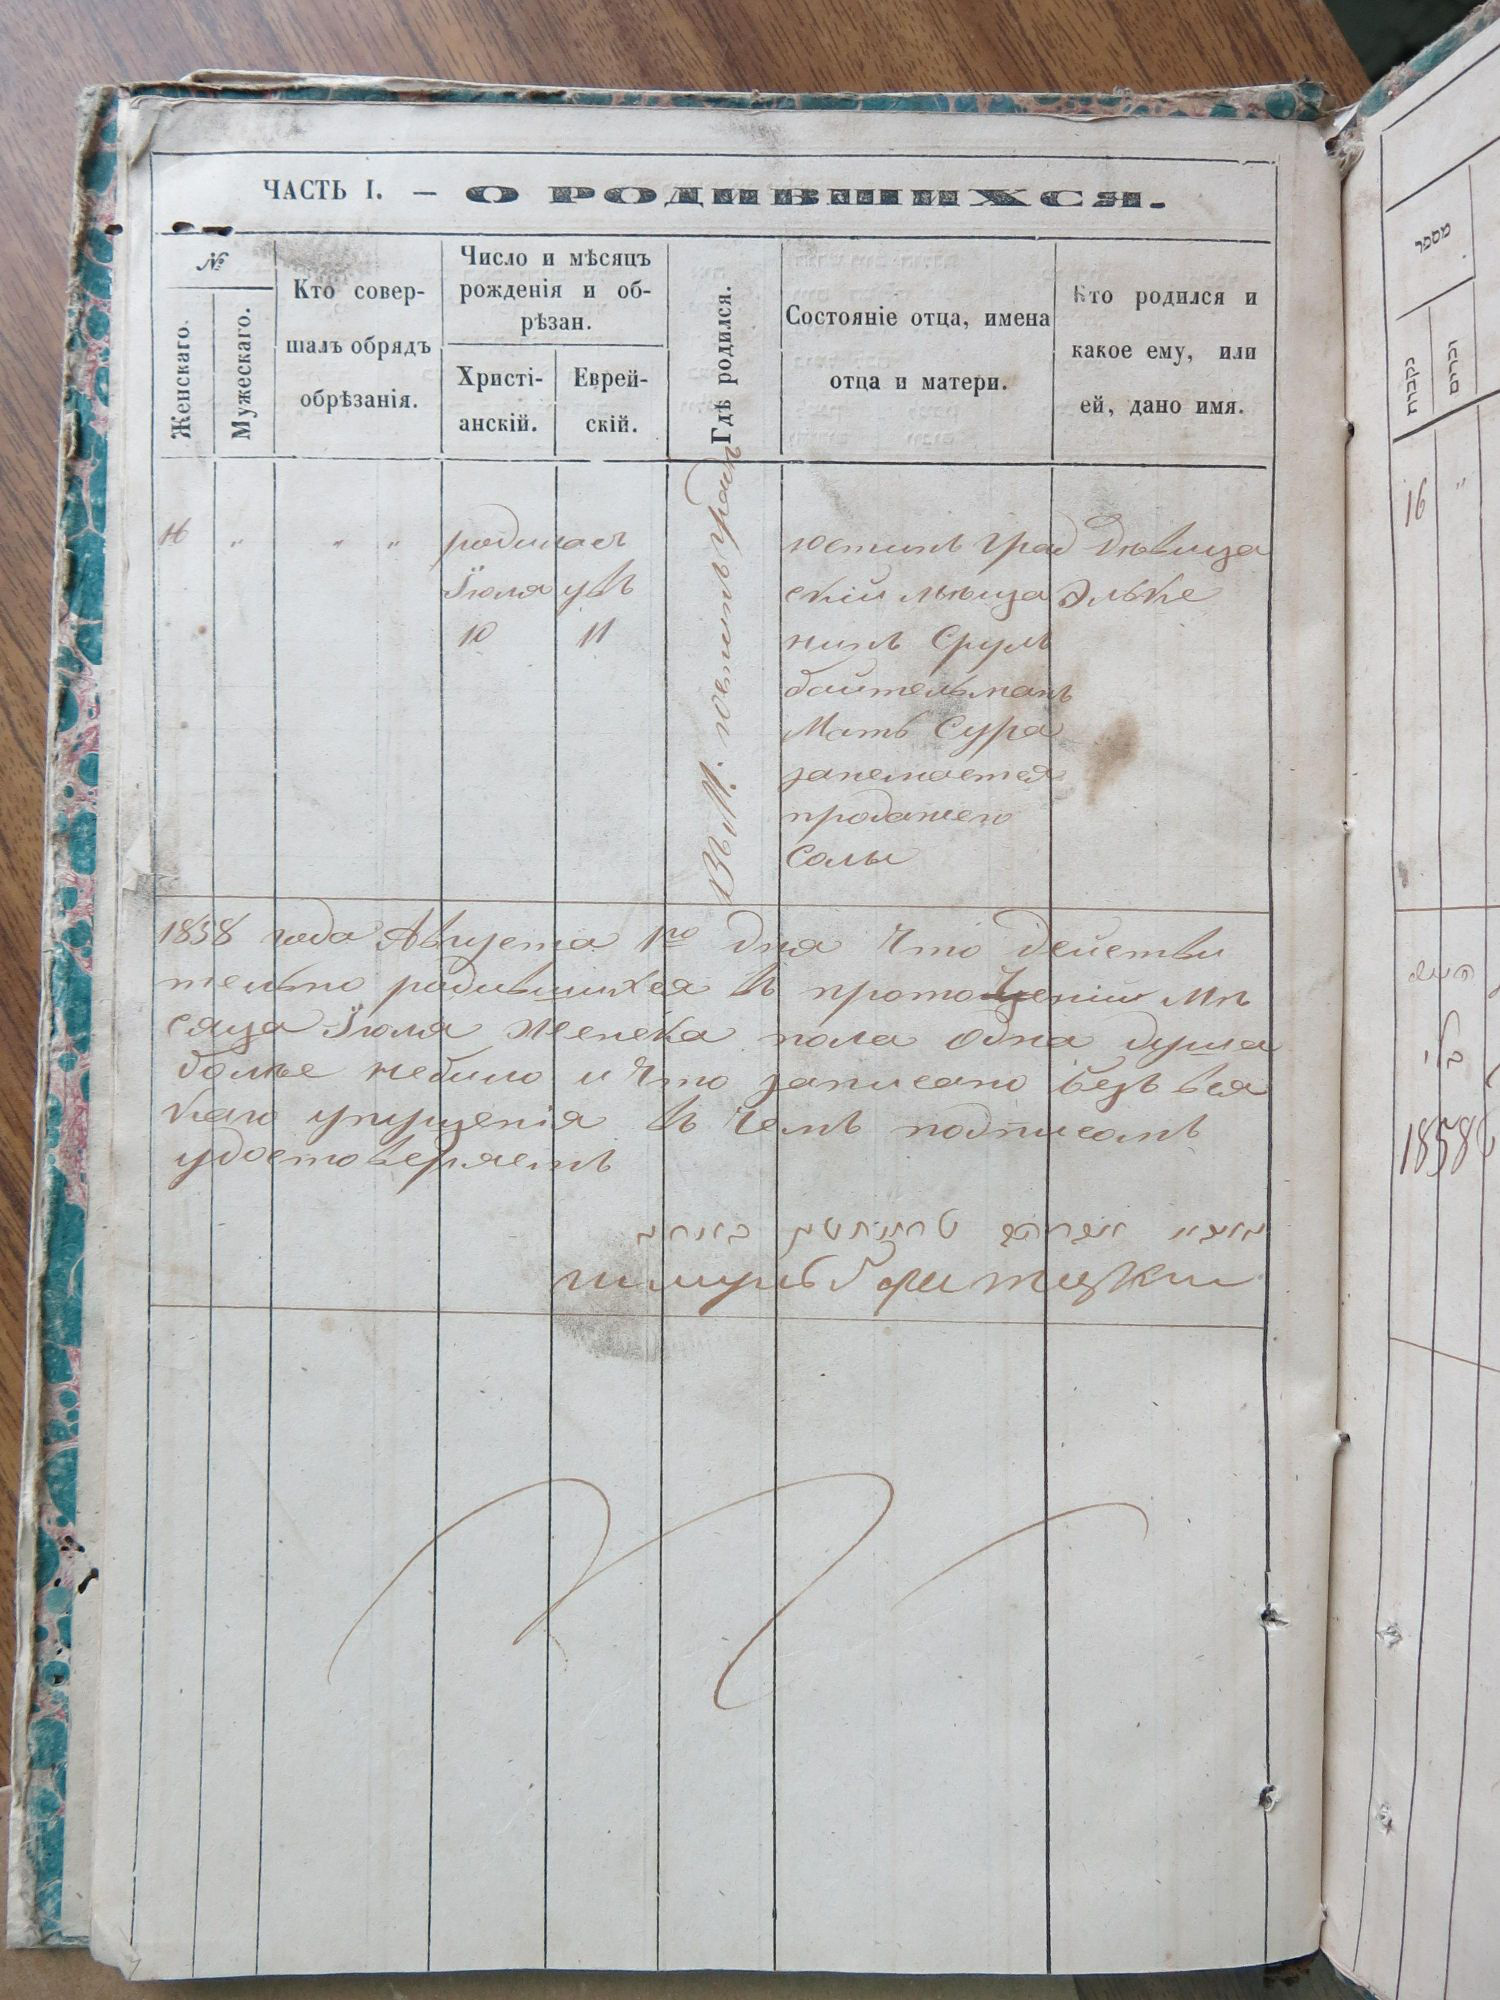 ЧАСТЬ I. — О РОДИВШИХСЯ.
№
Женскаго.
Мужескаго.
Кто совер-
шалъ обрядъ
обрѣзанія.
Число и мѣсяцъ
рожденія и об-
рѣзан.
Христі-
анскій.
Еврей-
скій.
Гдѣ родился.
Состояніе отца, имена
отца и матери.
Кто родился и
какое ему, или
ей, дано имя.
16 " " "
родилась
Іюля увъ
10 11
В М. юстинъ градъ
юстинъ град
скій мѣща
нинъ Сруль
байтельманъ
Мать Сура
занемается
продажею
Солы
Дѣвица
Элька
1858 года Августа 1го дня Что действи
тельно родившихся въ проточеніи мѣ
сяца Іюля женска пола одна душа
болѣе небило и что записано безъ вся
каго упущенія въ чемъ подписомъ
удостоверяетъ
מספר
נקבות
זכרים
16 "
1858